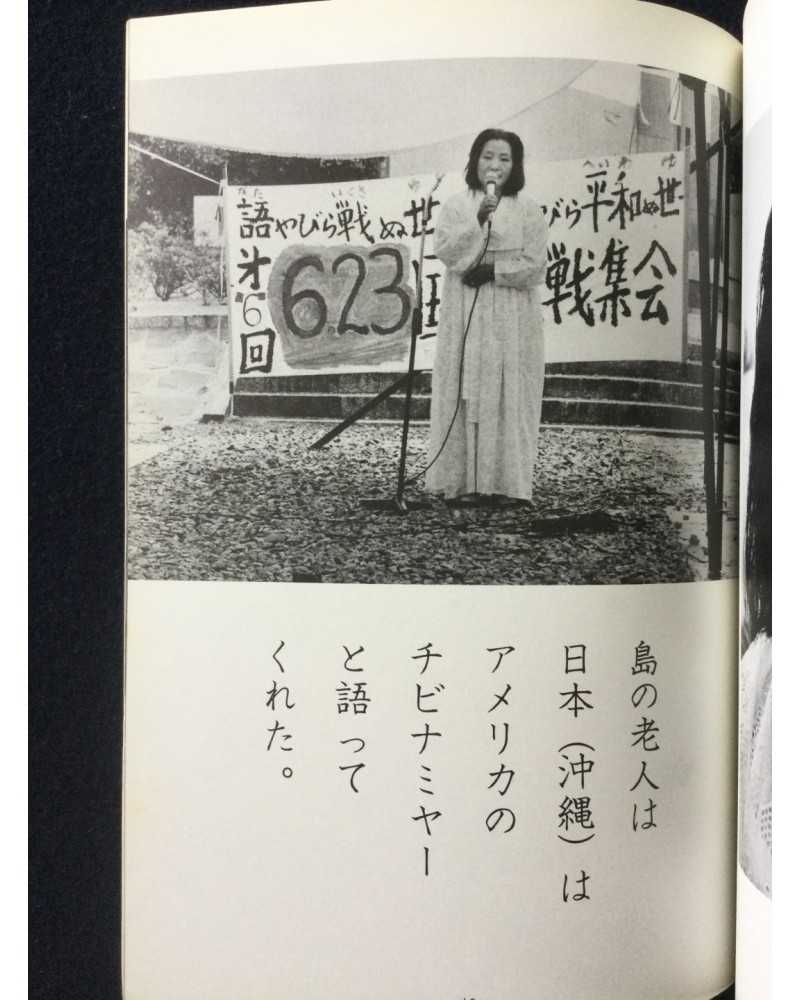 語やびら戦ぬ世
びら平和ぬ世
かた
いくさ
ゆ
へいわ
ゆ
才6回
623
戦集会
島の老人は
日本(沖縄)は
アメリカの
チビナミヤー
と語って
くれた。